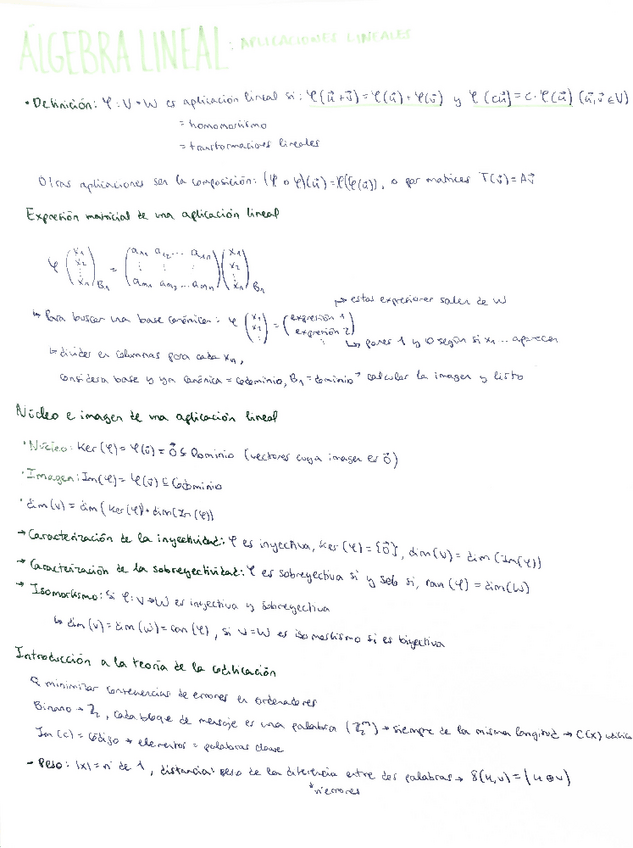 ÁLGEBRA LINEAL: APLICACIONES LINEALES
• Definición: φ: V→W es aplicación lineal si: φ(u⃗+v⃗)=φ(u⃗)+φ(v⃗) y φ(cu⃗)=c·φ(u⃗) (u⃗,v⃗∈V)
= homomorfismo
= transformaciones lineales
Otras aplicaciones son la composición: (φ∘φ)(u⃗)=φ(φ(u⃗)), o por matrices T(v⃗)=Av⃗
Expresión matricial de una aplicación lineal
φ (x1 x2 ⋮ xn)B1 = (a11 a12 ... a1n ⋮ ⋮ ⋮ am1 am2 ... amn)(x1 x2 ⋮ xn)B1
→ estas expresiones salen de W
↳ Para buscar una base canónica: φ (x1 x2 ⋮) = (expresión 1 expresión 2 ⋮)
↳ pones 1 y 0 según si x1 ... aparecen
↳ divides en columnas para cada xn,
considera base y ya canónica = codominio, B1 = dominio → calcular la imagen y listo
Núcleo e imagen de una aplicación lineal
• Núcleo: Ker(φ)=φ(v⃗)=0⃗ ⊆ Dominio (vectores cuya imagen es 0⃗)
• Imagen: Im(φ)=φ(v⃗) ⊆ Codominio
• dim(V)=dim(Ker(φ)+dim(Im(φ))
→ Caracterización de la inyectividad: φ es inyectiva, Ker(φ)={0⃗}, dim(V)=dim(Im(φ))
→ Caracterización de la sobreyectividad: φ es sobreyectiva si y solo si, ran(φ)=dim(W)
→ Isomorfismo: Si φ: V→W es inyectiva y sobreyectiva
↳ dim(V)=dim(W)=ran(φ), si V=W es isomorfismo si es biyectiva
Introducción a la teoría de la codificación
minimizar consecuencias de errores en ordenadores
Binario → ℤ2, cada bloque de mensaje es una palabra (ℤ2ᵐ) → siempre de la misma longitud → C(x)
Im(c)=código → elementos = palabras clave
- Peso: |x|=nº de 1, distancia: peso de la diferencia entre dos palabras → δ(u,v)=|u⊕v|
nº errores